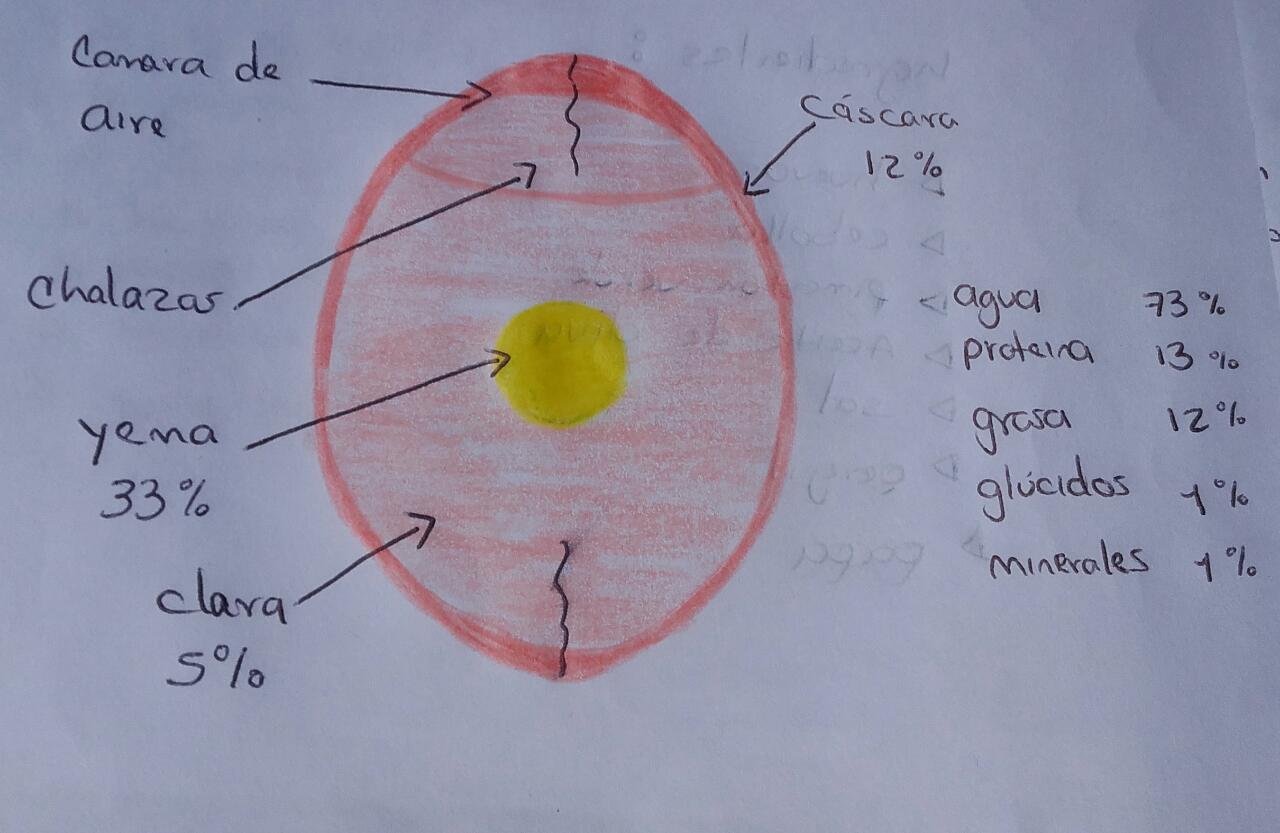 Camara de
aire
Cáscara
12%
Chalazas
yema
33%
clara
5%
agua 73%
proteina 13%
grasa 12%
glúcidos 1%
minerales 1%